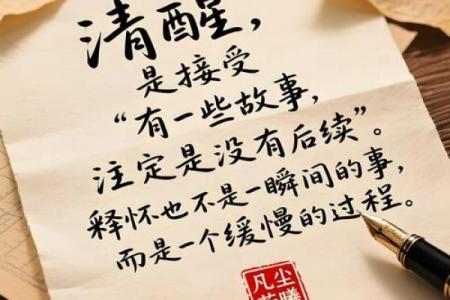 清醒，
是接受
“有一些故事，
注定是没有后续”。
释怀也不是一瞬间的事，
而是一个缓慢的过程。
凡尘